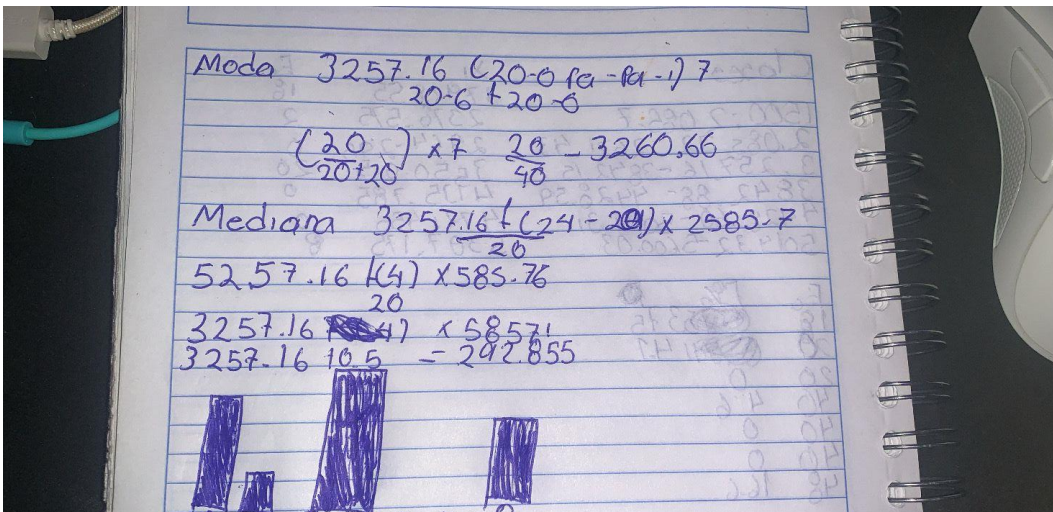 Moda 3257.16 (20-0 fa - fa - 1) 7
20-6 + 20-0
(20 / 20+20) x7 20/40 - 3260.66
Mediana 3257.16 + (24 - 20) x 2585.7
20
5257.16 +(4) x 585.76
20
3257.16 4) x 58571
3257.16 10.5 = 292.855